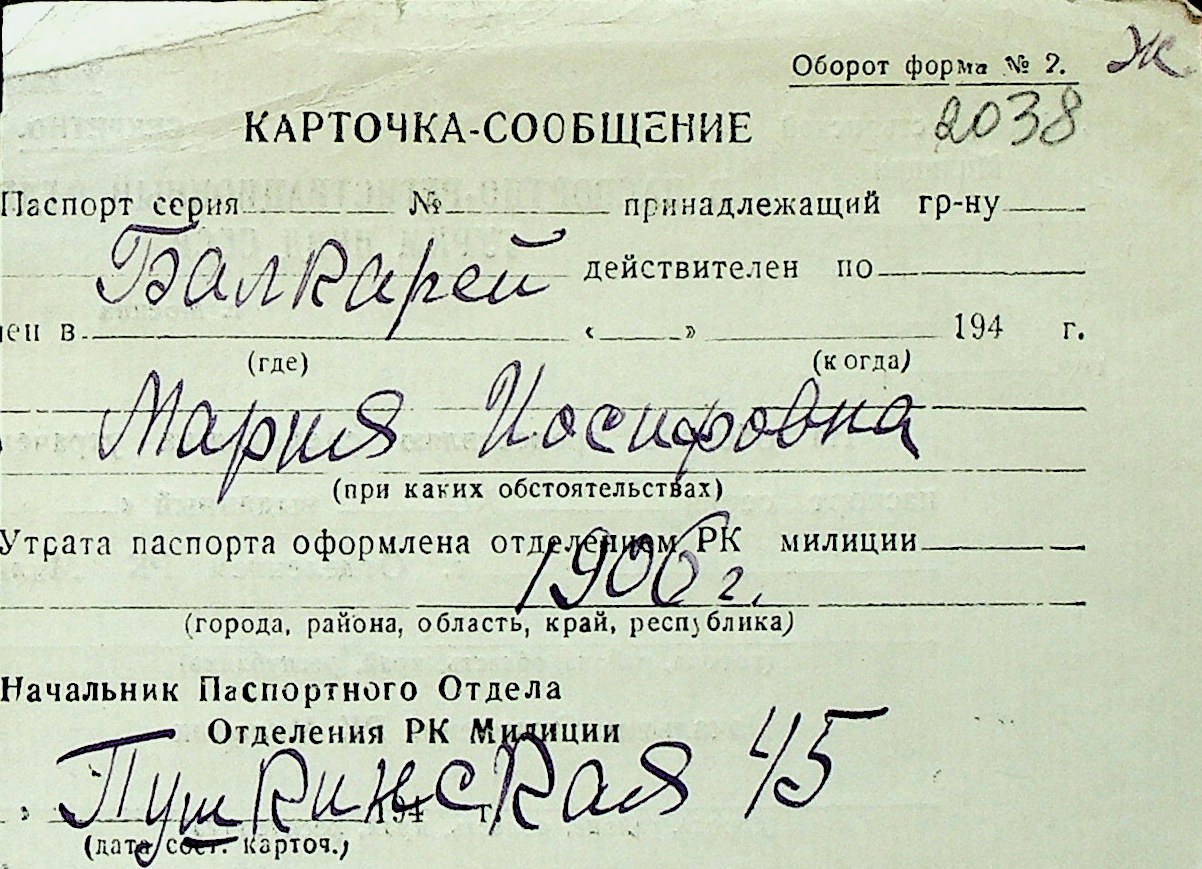 Оборот форма № 2. Ж
КАРТОЧКА-СООБЩЕНИЕ 2038
Паспорт серия № принадлежащий гр-ну
Балкарей действителен по
ен в « » 194 г.
(где) (когда)
Мария Иосифовна
(при каких обстоятельствах)
Утрата паспорта оформлена отделением РК милиции
1906 г.
(города, района, область, край, республика)
Начальник Паспортного Отдела
Отделения РК Милиции
Пушкинская 45
» 194 г.
(дата сост. карточ.)